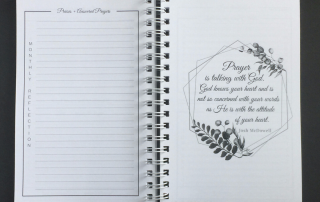 Praise • Answered Prayers
MONTHLY REFLECTION
Prayer
is talking with God.
God knows your heart and is
not so concerned with your words
as He is with the attitude
of your heart.
Josh McDowell